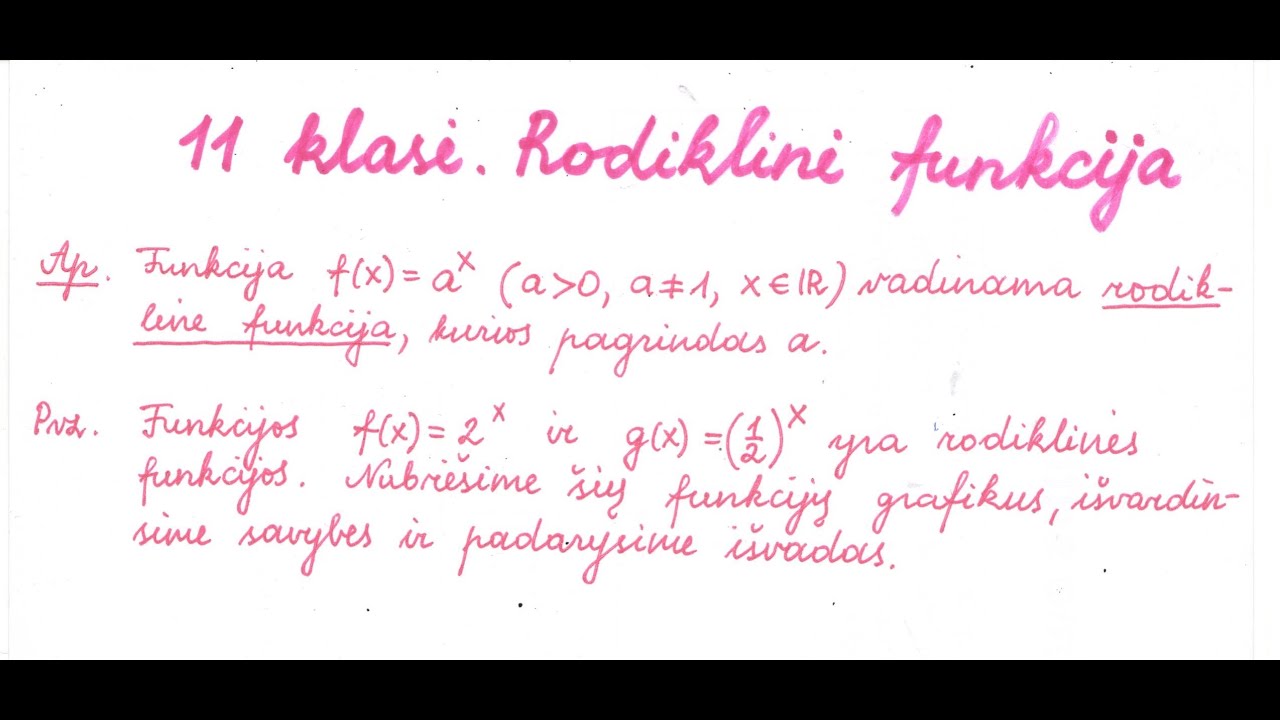 11 klasė. Rodiklinė funkcija
Ap. Funkcija f(x) = a^x (a>0, a≠1, x∈ℝ) vadinama rodik-
line funkcija, kurios pagrindas a.
Pvz. Funkcijos f(x) = 2^x ir g(x) = (1/2)^x yra rodiklinės
funkcijos. Nubrėšime šių funkcijų grafikus, išvardin-
sime savybes ir padarysime išvadas.